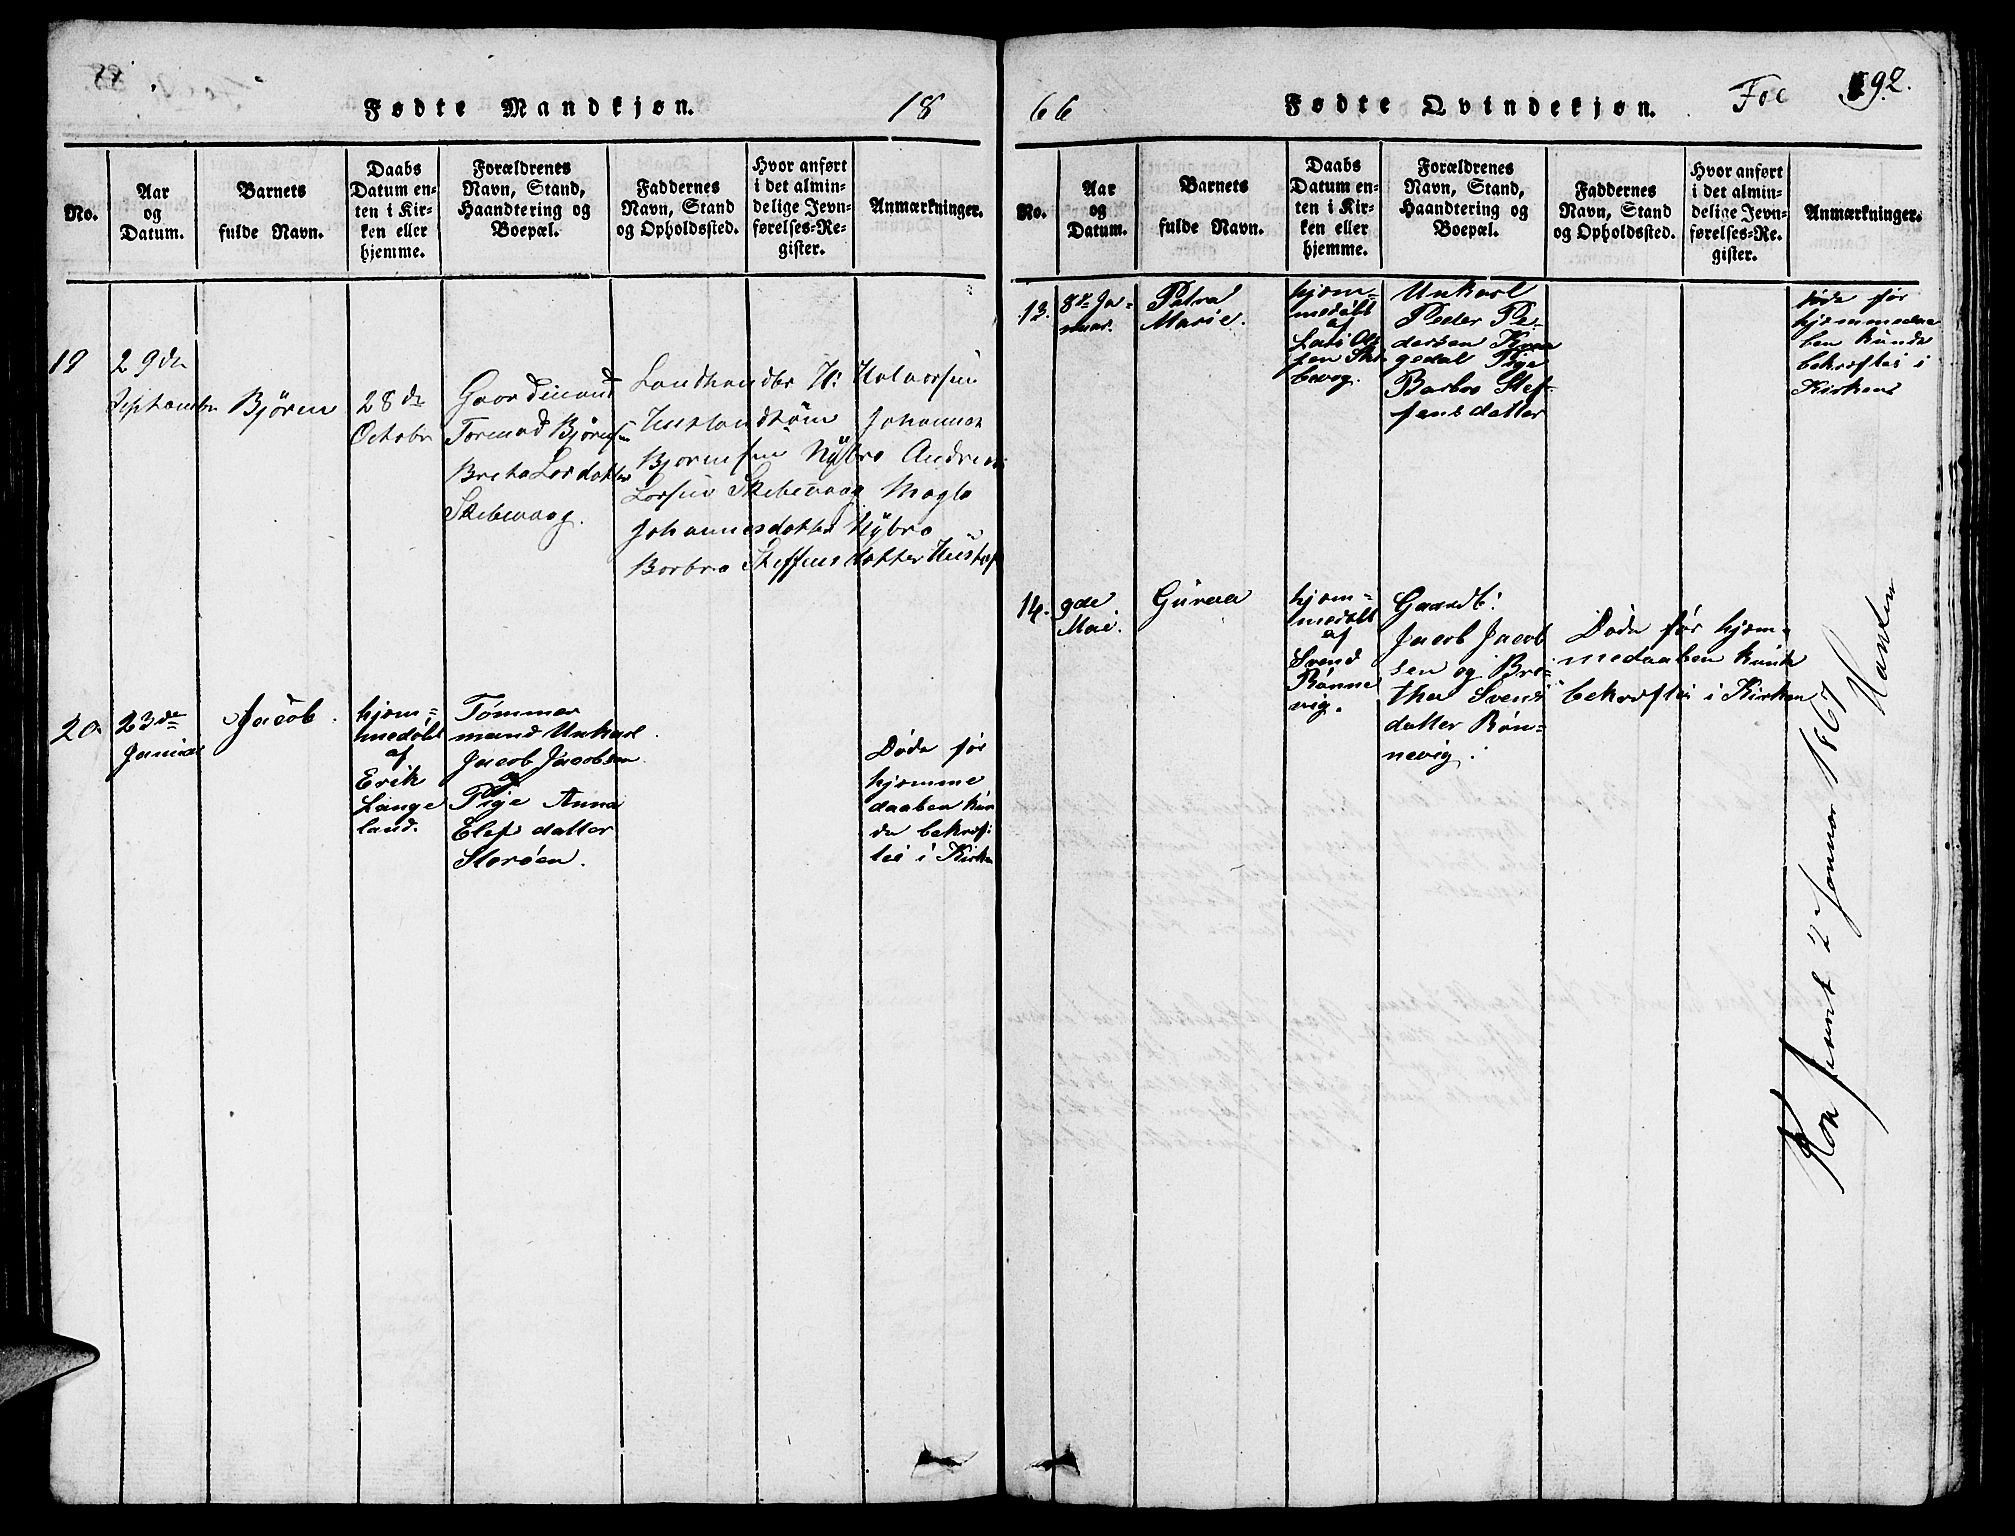 Fødte Mandkjøn.
18
No.
Aar
og
Datum.
Barnets
fulde Navn.
Daabs
Datum en-
ten i Kir-
ken eller
hjemme.
Forældrenes
Navn, Stand,
Haandtering og
Boepæl.
Faddernes
Navn, Stand
og Opholdssted.
Hvor anført
i det almin-
delige Jevn-
førelses-Re-
gister.
Anmærkninger.
19
29de
September
Bjøren
28de
October
Tormod Bjørensen
Breta Larsdatter
Skibevaag.
Halvorsen
Johannes
Bjørensen Nÿbro Andreas
Larsen Skibevaag Magla
Johannesdatter Nÿbro
Borbra Steffensdatter
20
23de
Januar
Jacob.
hjem-
medøbt
af
Erik
Lange
land.
Tømmer
mand Unkarl
Jacob Jacobsen
og
Pige Anna
Elefsdatter
Storøen.
Døde før
hjemme
daaben kun
de bekræf-
tes i Kirken
66
Fødte Qvindekjøn.
Foe
192.
No.
Aar
og
Datum.
Barnets
fulde Navn.
Daabs
Datum en-
ten i Kir-
ken eller
hjemme.
Forældrenes
Navn, Stand,
Haandtering og
Boepæl.
Faddernes
Navn, Stand
og Opholdssted.
Hvor anført
i det almin-
delige Jevn-
førelses-Re-
gister.
Anmærkninger.
13.
8de Ja-
nuar.
Petra
Marie.
hjem-
medøbt
af
Lars Ol-
sen Ski-
bevog.
Unkarl
Peder Pe-
dersen
gedal Pige
Barbro Stef-
fensdatter
døde før
hjemmedaa
ben kunde
bekræftes i
Kirken
14.
9de
Mai.
Guroa
hjem-
medøbt
af
Svend
Rønne
vig.
Gaardb:
Jacob Jacob
sen og Bre-
tha Svends
datter Røn-
nevig.
Døde før hjem-
medaaben kunde
bekræftes i Kirken
2 Januar 1867